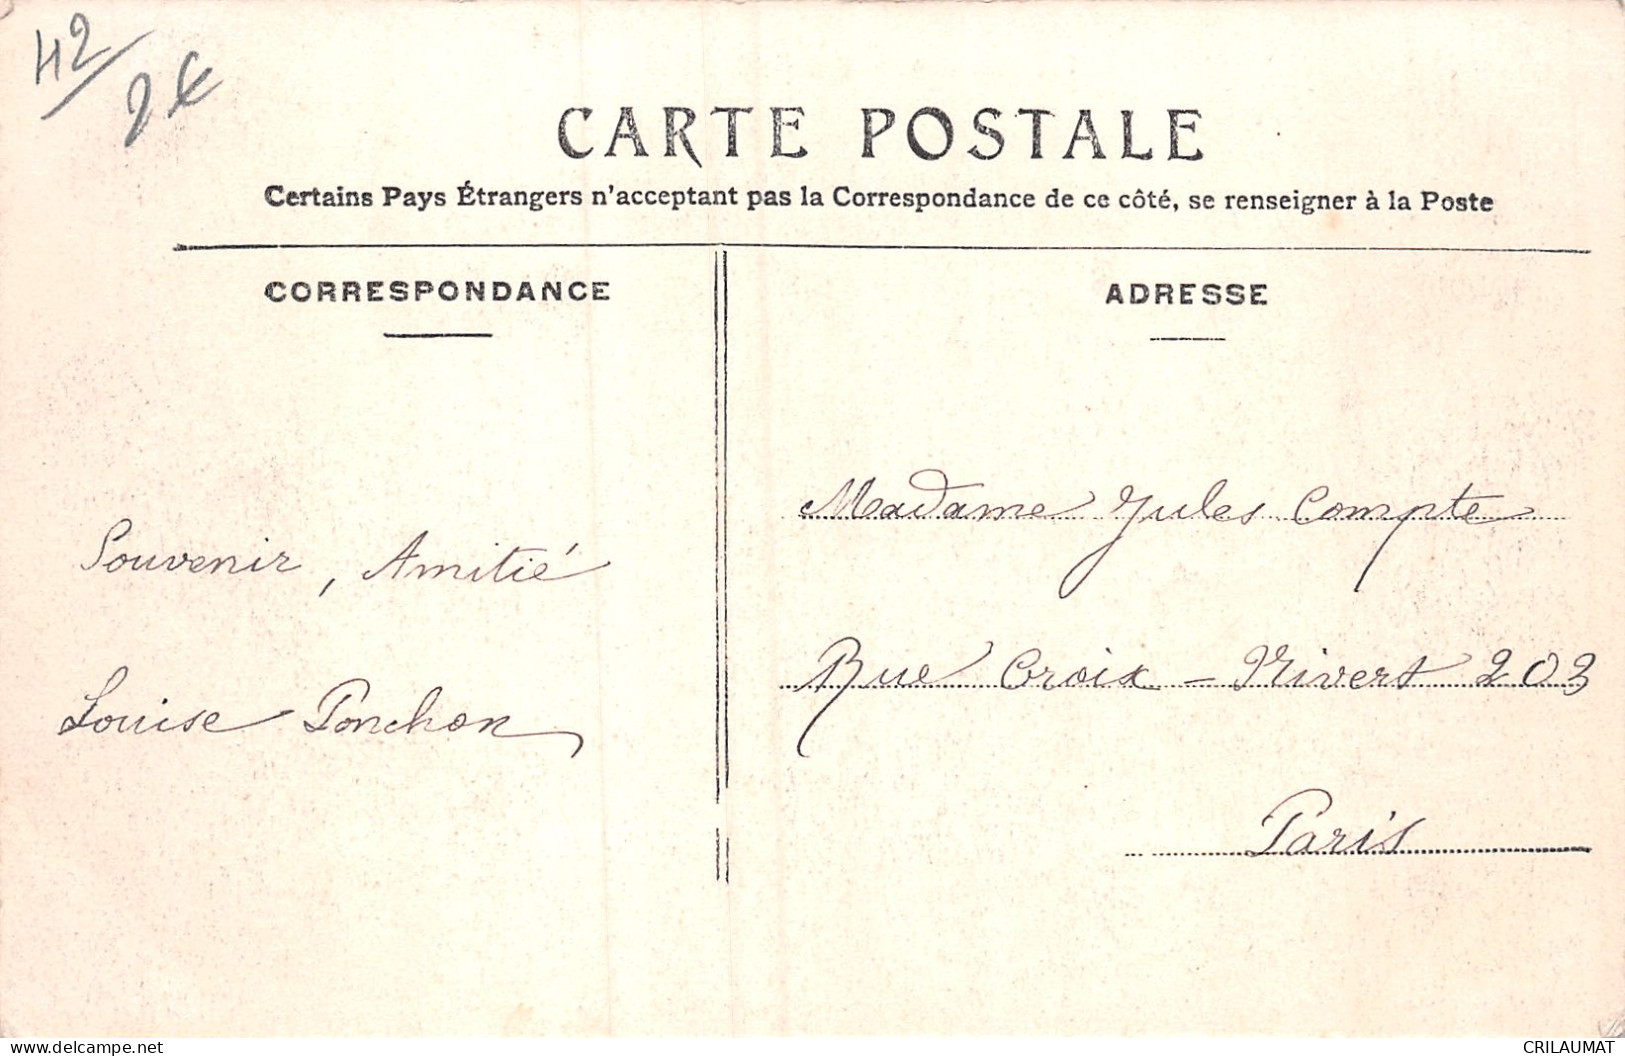 42
2€
CARTE POSTALE
Certains Pays Étrangers n'acceptant pas la Correspondance de ce côté, se renseigner à la Poste
CORRESPONDANCE
ADRESSE
Souvenir, Amitié
Louise Ponchon
Madame Jules Compte
Rue Croix-Nivert 203
Paris
www.delcampe.net
CRILAUMAT